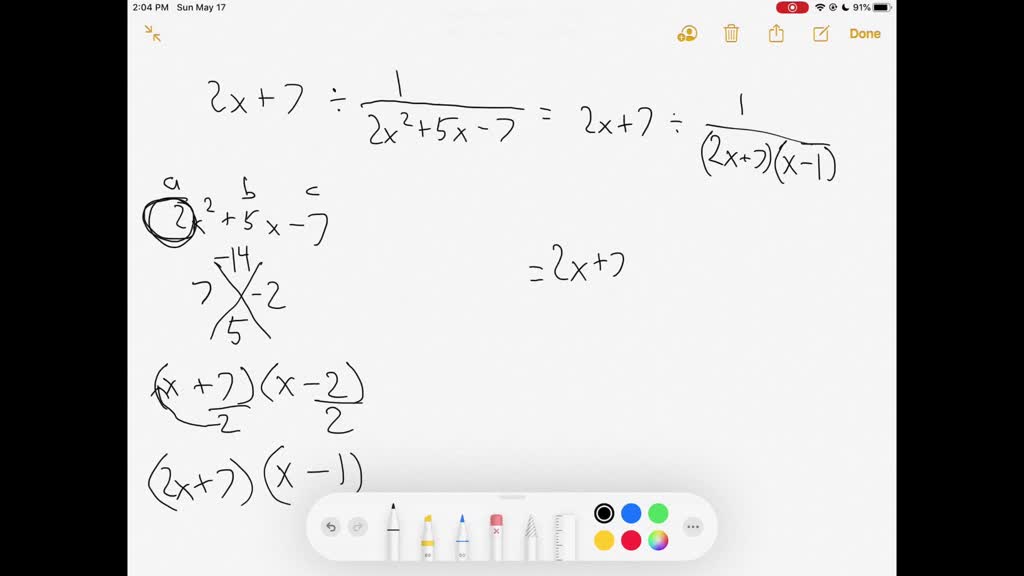 2:04 PM Sun May 17 91%
Done
2x+7 ÷ 1/(2x²+5x-7) = 2x+7 ÷ 1/((2x+7)(x-1))
a b c
2x²+5x-7
-14
7 -2
5
= 2x+7
(x+7/2)(x-2/2)
(2x+7)(x-1)